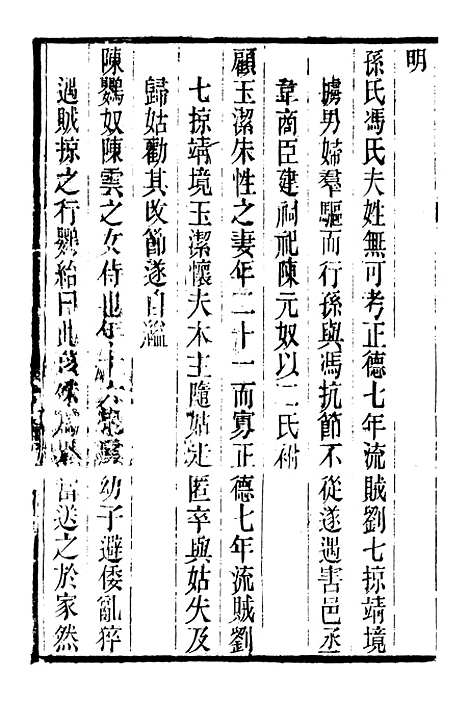 明
孫氏馮氏夫姓無可考正德七年流賊劉七掠靖境
擄男婦羣驅而行孫與馮抗節不從遂遇害邑丞
韋商臣建祠祀陳元奴以二氏祔
顧玉潔朱性之妻年二十一而寡正德七年流賊劉
七掠靖境玉潔懷夫木主隨姑走匿卒與姑失及
歸姑勸其改節遂自縊
陳鸚奴陳雲之女侍也年十六 幼子避倭亂猝
遇賊掠之行鸚紿曰此 當送之於家然